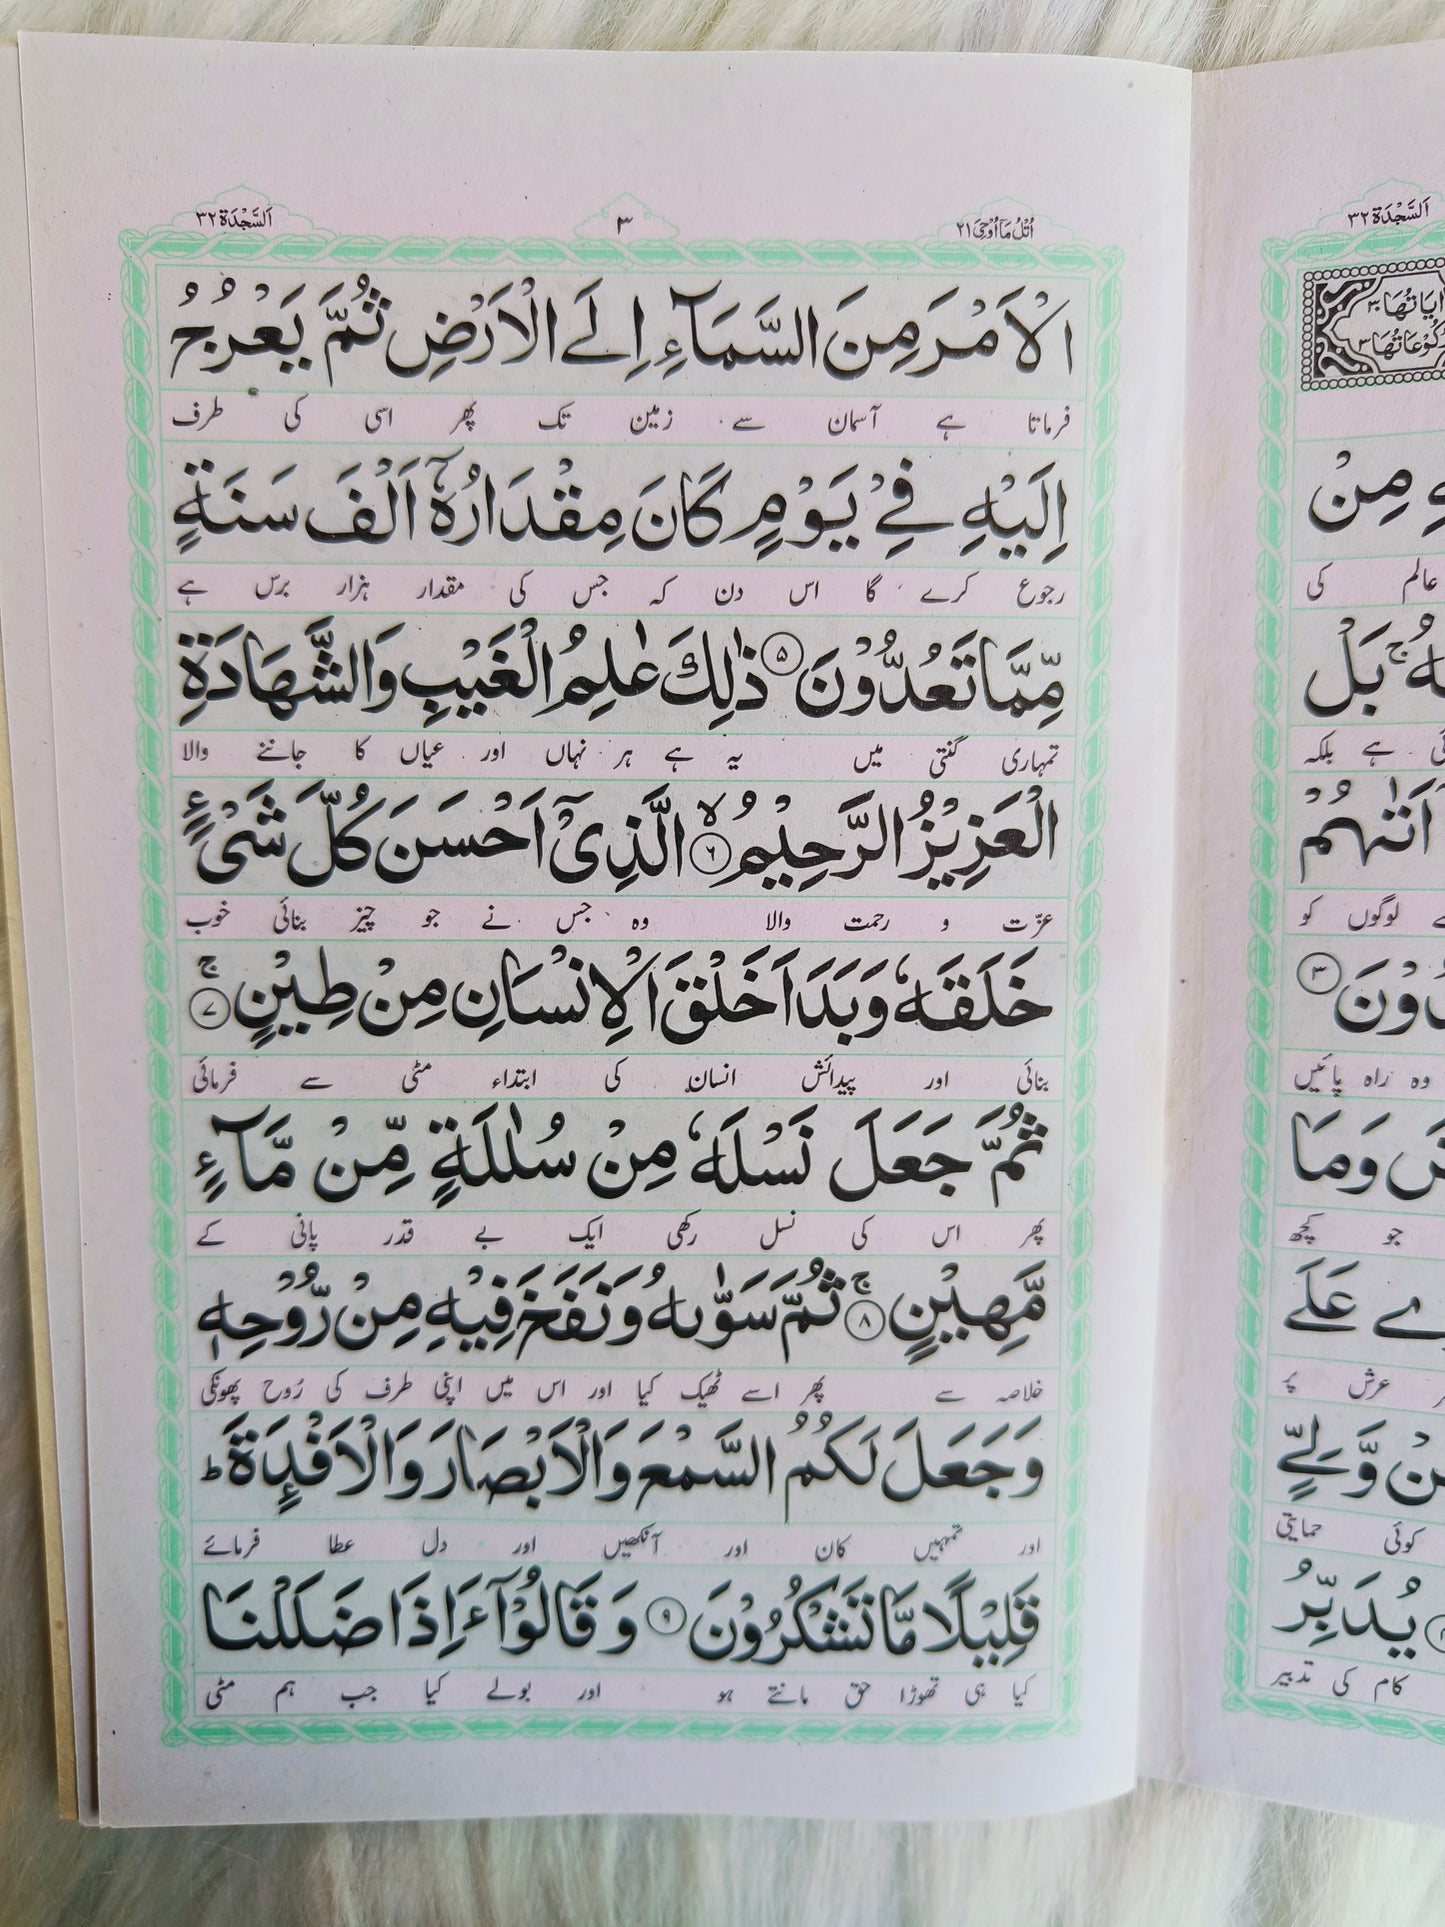 اُتْلُ مَآ اُوْحِیَ ٢١
٣
اَلسَّجْدَة ٣٢
الْاَمْرَ مِنَ السَّمَآءِ اِلَی الْاَرْضِ ثُمَّ یَعْرُجُ
فرماتا ہے آسمان سے زمین تک پھر اسی کی طرف
اِلَیْهِ فِیْ یَوْمٍ كَانَ مِقْدَارُهٗۤ اَلْفَ سَنَةٍ
رجوع کرے گا اس دن کہ جس کی مقدار ہزار برس ہے
مِّمَّا تَعُدُّوْنَ ۵ ذٰلِكَ عٰلِمُ الْغَیْبِ وَالشَّهَادَةِ
تمہاری گنتی میں یہ ہے ہر نہاں اور عیاں کا جاننے والا
الْعَزِیْزُ الرَّحِیْمُ ۙ ۶ الَّذِیْۤ اَحْسَنَ كُلَّ شَیْءٍ
عزّت و رحمت والا وہ جس نے جو چیز بنائی خوب
خَلَقَهٗ وَبَدَاَ خَلْقَ الْاِنْسَانِ مِنْ طِیْنٍ ۚ ۷
بنائی اور پیدائش انسان کی ابتداء مٹی سے فرمائی
ثُمَّ جَعَلَ نَسْلَهٗ مِنْ سُلٰلَةٍ مِّنْ مَّآءٍ
پھر اس کی نسل رکھی ایک بے قدر پانی کے
مَّهِیْنٍ ۚ ۸ ثُمَّ سَوّٰىهُ وَنَفَخَ فِیْهِ مِنْ رُّوْحِهٖ
خلاصہ سے پھر اسے ٹھیک کیا اور اس میں اپنی طرف کی رُوح پھونکی
وَجَعَلَ لَكُمُ السَّمْعَ وَالْاَبْصَارَ وَالْاَفْـِٕدَةَ ؕ
اور تمہیں کان اور آنکھیں اور دل عطا فرمائے
قَلِیْلًا مَّا تَشْكُرُوْنَ ۹ وَقَالُوْۤا ءَاِذَا ضَلَلْنَا
کیا ہی تھوڑا حق مانتے ہو اور بولے کیا جب ہم مٹی
اَلسَّجْدَة ٣٢
مِنْ
عالم کی
بَلْ
ہے بلکہ
اَتٰىهُمْ
لوگوں کو
٣
وہ راہ پائیں
وَمَا
جو کچھ
عَلَی
عرش پر
وَّلِیٍّ
کوئی حمایتی
یُدَبِّرُ
کام کی تدبیر